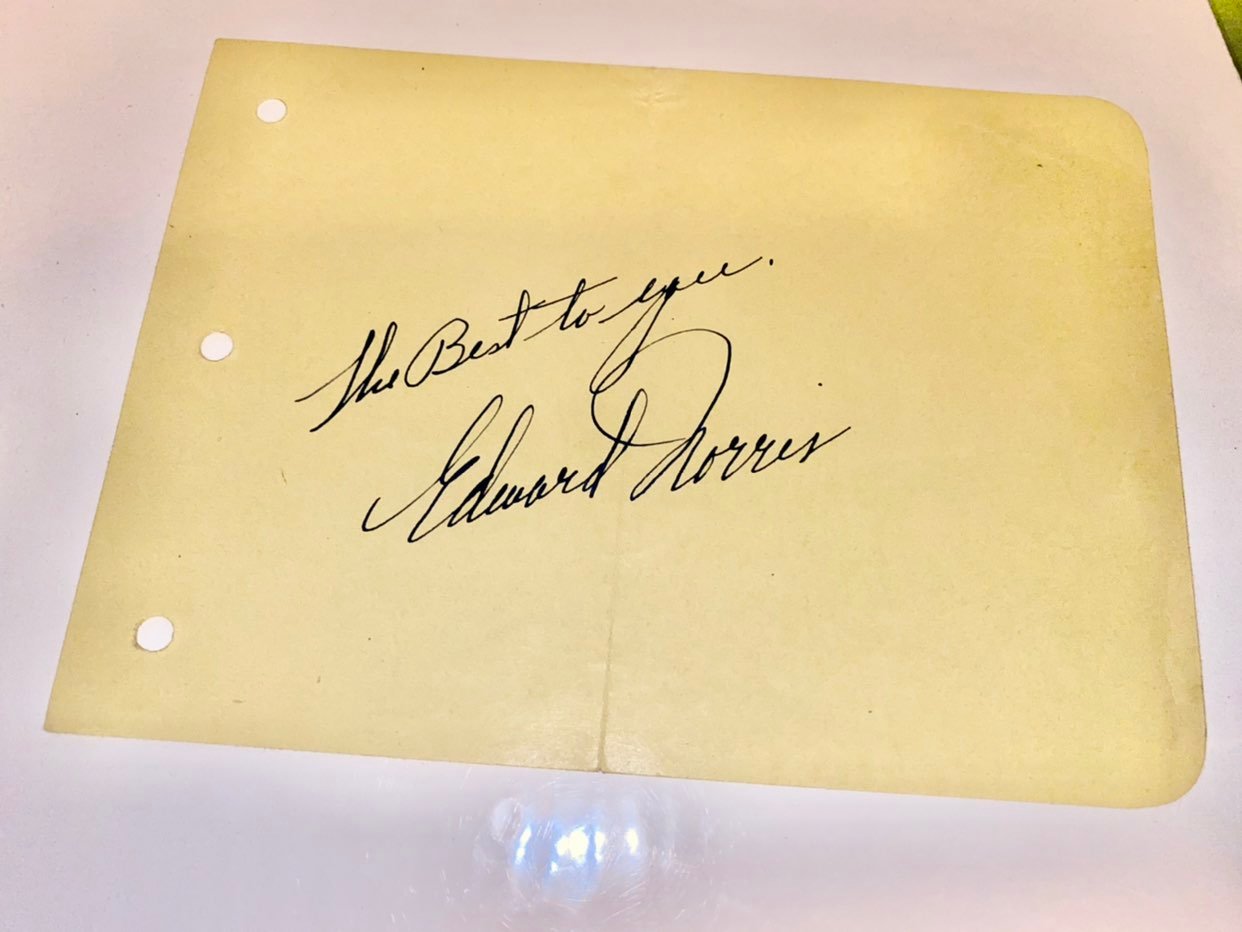 The Best to you.
Edward Norris